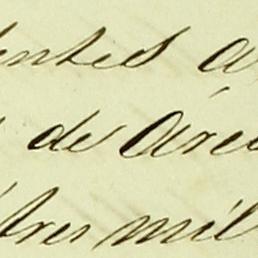 entes a
de Area
tres mil